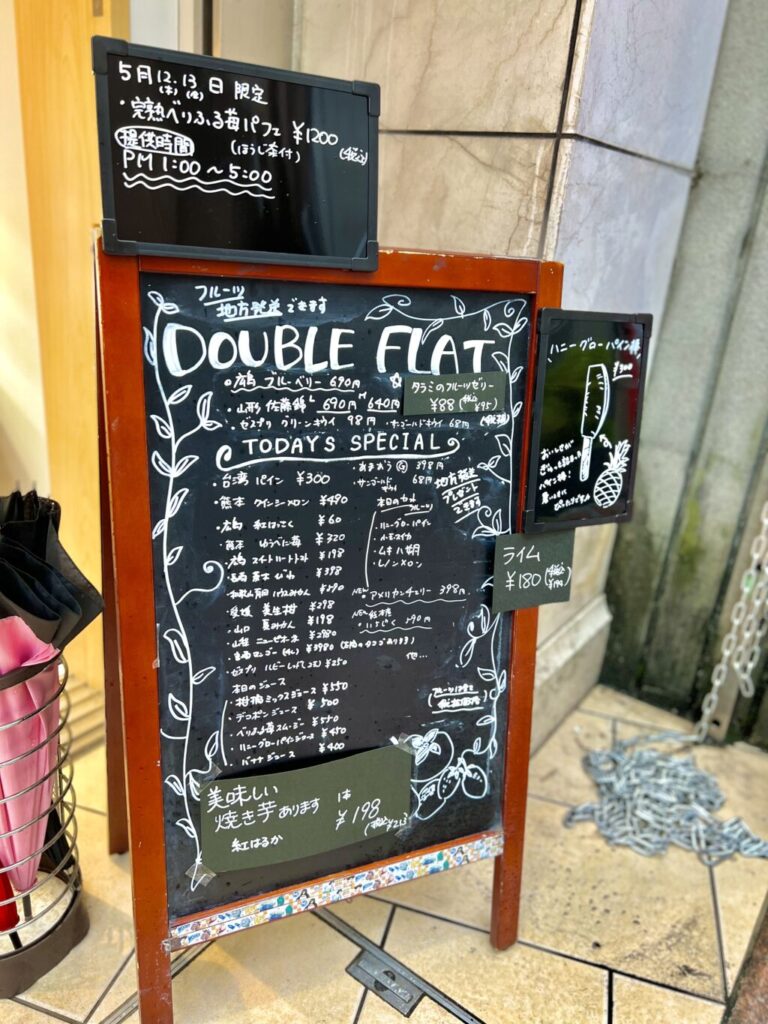 5月12.13日 限定
(木)(金)
・完熟べりふる苺パフェ ¥1200
(ほうじ茶付) (税込)
提供時間
PM 1:00〜5:00
フルーツ
地方発送できます
DOUBLE FLAT
ブルーベリー 690円
・山形 佐藤錦 L 690円 M 640円
・ゼスプリ グリーンキウイ 98円 ・サンゴールドキウイ 68円
タラミのフルーツゼリー
¥88 (税込 ¥95)
TODAY'S SPECIAL
・台湾 パイン ¥300
・熊本 クインシーメロン ¥490
・広島 紅はっさく ¥60
・熊本 ゆうべに苺 ¥320
スイートハートトマト ¥198
びわ ¥398
愛媛 美生柑 ¥298
山口 夏みかん ¥198
ニューピオーネ
ゼスプリ ¥250
本日のジュース
・柑橘ミックスジュース ¥550
・デコポンジュース ¥500
・べりふる苺スムージー ¥550
・ハニーグローパインジュース ¥450
・バナナジュース ¥400
・あまおう G 398円
・サンゴールドキウイ 68円
地方発送
プレゼント
できます
本日のカットフルーツ
・ハニーグローパイン
・小玉スイカ
・レノンメロン
NEW アメリカンチェリー 398円
・いちじく
他…
ハニーグローパイン
¥300
ライム
¥180
美味しい
焼き芋あります 1本
¥198
(税込 ¥213)
紅はるか